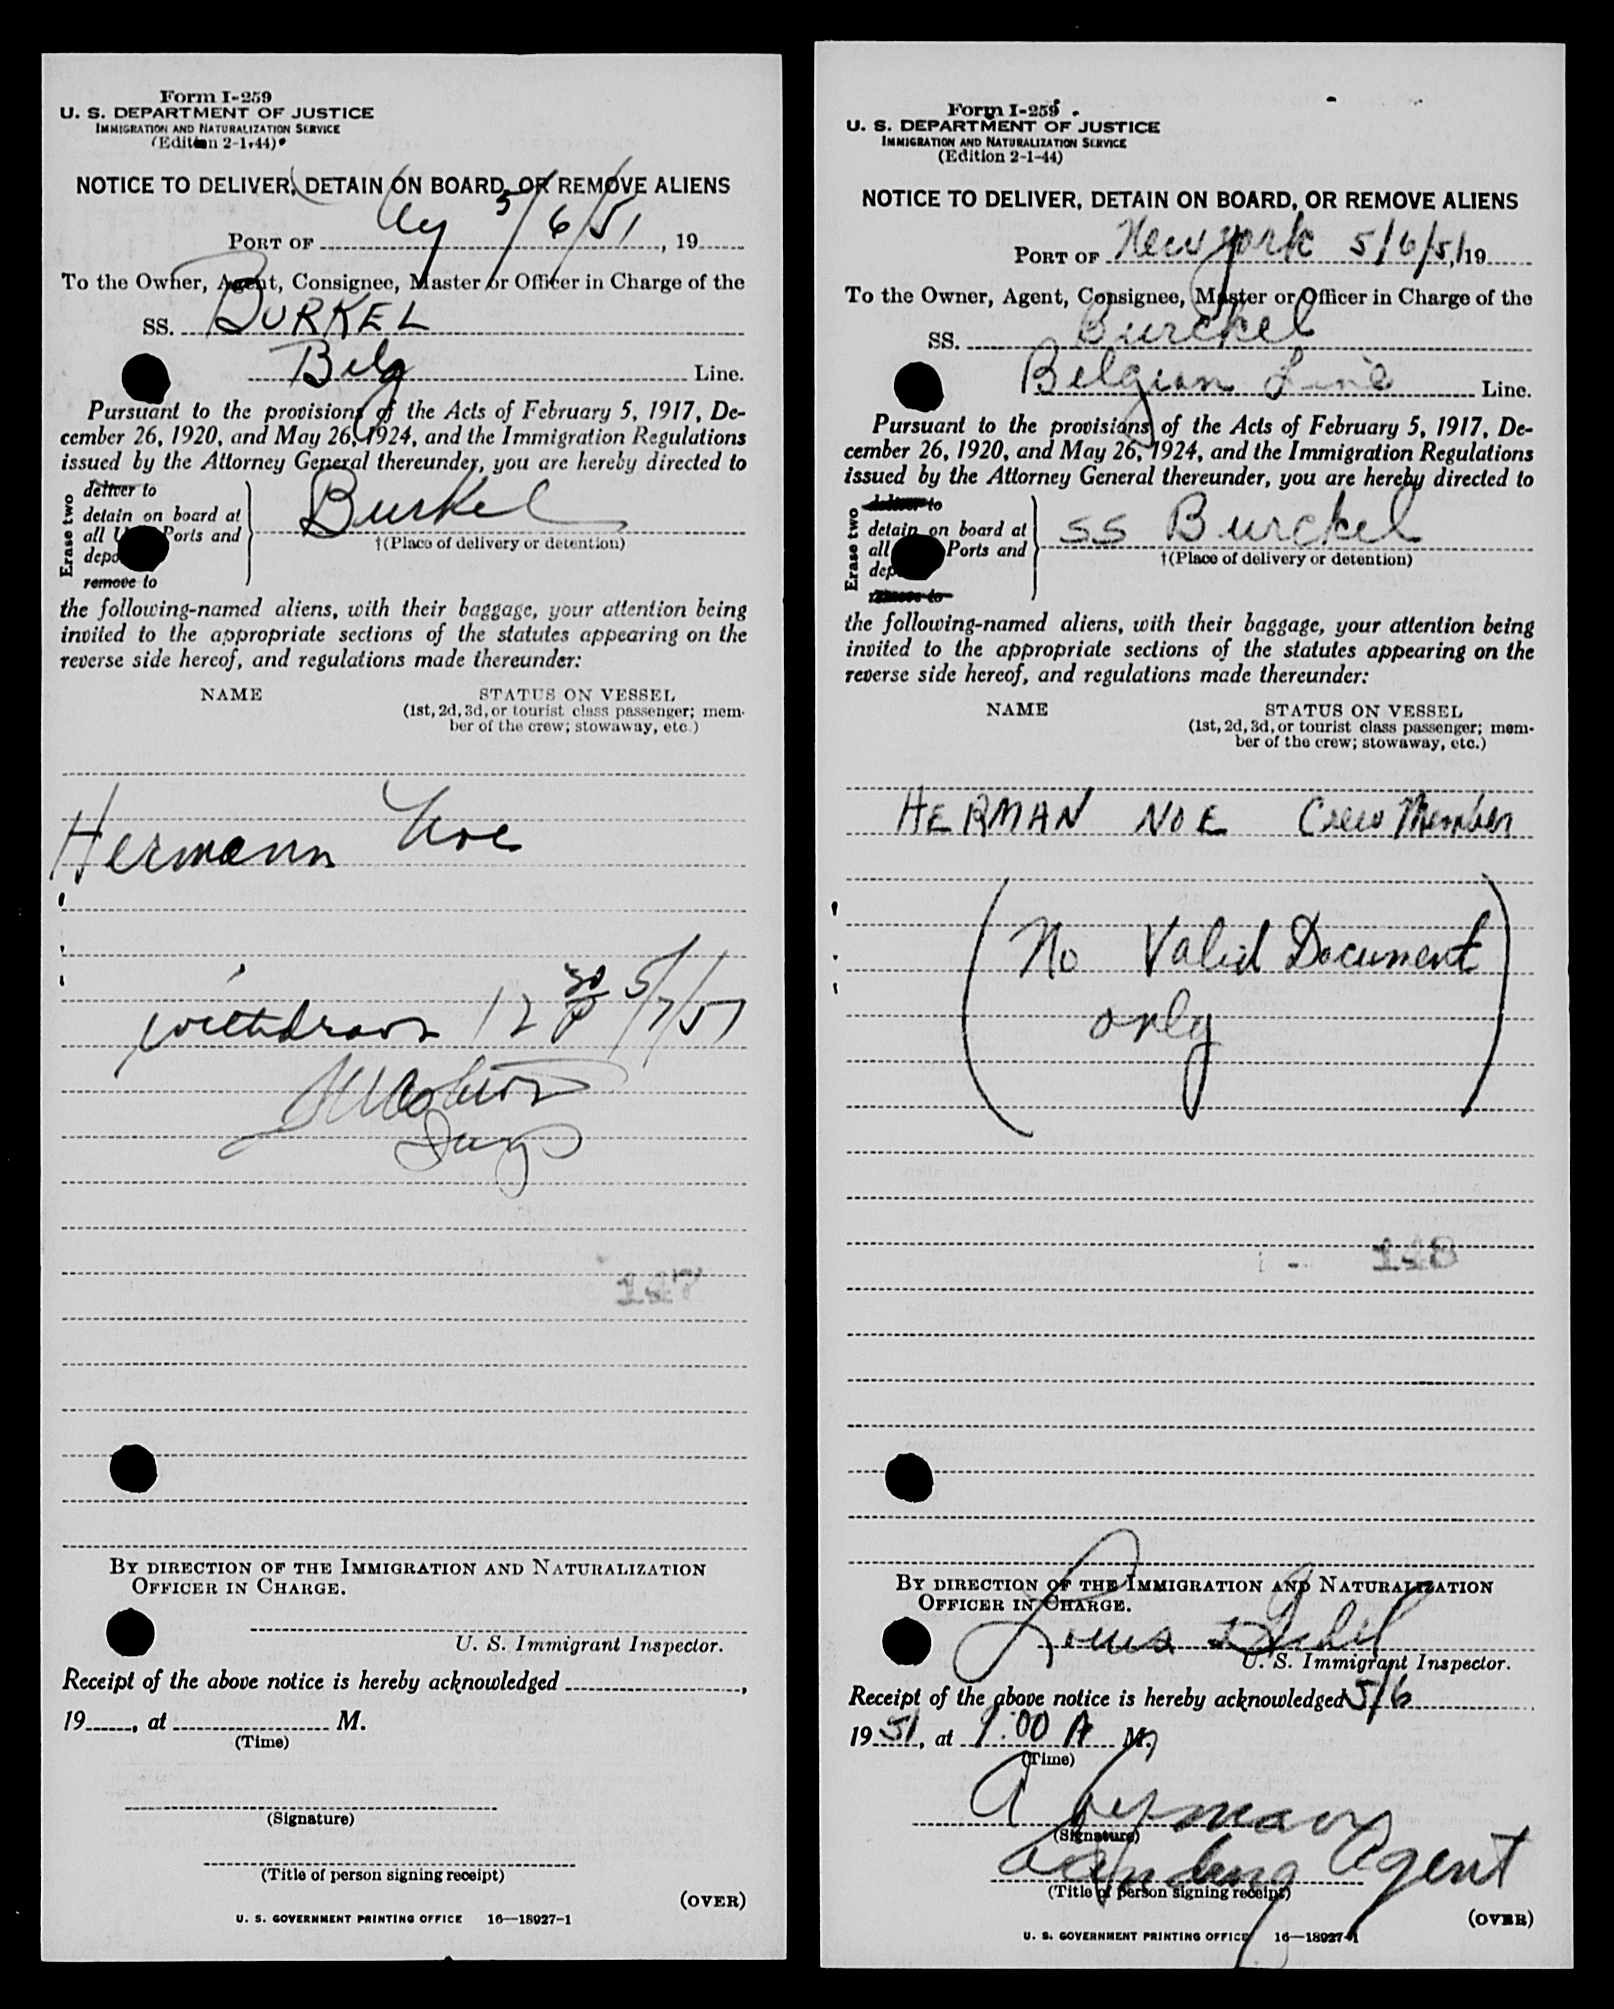 Form I-259
U. S. DEPARTMENT OF JUSTICE
IMMIGRATION AND NATURALIZATION SERVICE
(Edition 2-1-44)
NOTICE TO DELIVER, DETAIN ON BOARD, OR REMOVE ALIENS
PORT OF Ny 5/6/51, 19
To the Owner, Agent, Consignee, Master or Officer in Charge of the
SS. BURKEL
Belg Line.
Pursuant to the provisions of the Acts of February 5, 1917, De-
cember 26, 1920, and May 26, 1924, and the Immigration Regulations
issued by the Attorney General thereunder, you are hereby directed to
Erase two
deliver to
detain on board at
all U Ports and
depo
remove to
Burkel
†(Place of delivery or detention)
the following-named aliens, with their baggage, your attention being
invited to the appropriate sections of the statutes appearing on the
reverse side hereof, and regulations made thereunder:
NAME STATUS ON VESSEL
(1st, 2d, 3d, or tourist class passenger; mem-
ber of the crew; stowaway, etc.)
Hermann Noe
withdrawn 12 30 P 5/7/51
147
BY DIRECTION OF THE IMMIGRATION AND NATURALIZATION
OFFICER IN CHARGE.
U. S. Immigrant Inspector.
Receipt of the above notice is hereby acknowledged ,
19 , at M.
(Time)
(Signature)
(Title of person signing receipt)
(OVER)
U. S. GOVERNMENT PRINTING OFFICE 16—18927-1
Form I-259
U. S. DEPARTMENT OF JUSTICE
IMMIGRATION AND NATURALIZATION SERVICE
(Edition 2-1-44)
NOTICE TO DELIVER, DETAIN ON BOARD, OR REMOVE ALIENS
PORT OF New york 5/6/51, 19
To the Owner, Agent, Consignee, Master or Officer in Charge of the
SS. Burckel
Belgian Line Line.
Pursuant to the provisions of the Acts of February 5, 1917, De-
cember 26, 1920, and May 26, 1924, and the Immigration Regulations
issued by the Attorney General thereunder, you are hereby directed to
Erase two
deliver to
detain on board at
all Ports and
dep
remove to
SS Burckel
†(Place of delivery or detention)
the following-named aliens, with their baggage, your attention being
invited to the appropriate sections of the statutes appearing on the
reverse side hereof, and regulations made thereunder:
NAME STATUS ON VESSEL
(1st, 2d, 3d, or tourist class passenger; mem-
ber of the crew; stowaway, etc.)
HERMAN NOE Crew Member
(No Valid Document
only)
148
BY DIRECTION OF THE IMMIGRATION AND NATURALIZATION
OFFICER IN CHARGE.
Louis
U. S. Immigrant Inspector.
Receipt of the above notice is hereby acknowledged 5/6
19 51, at 9:00 A M.
(Time)
A
(Signature)
Landing Agent
(Title of person signing receipt)
(OVER)
U. S. GOVERNMENT PRINTING OFFICE 16—18927-1